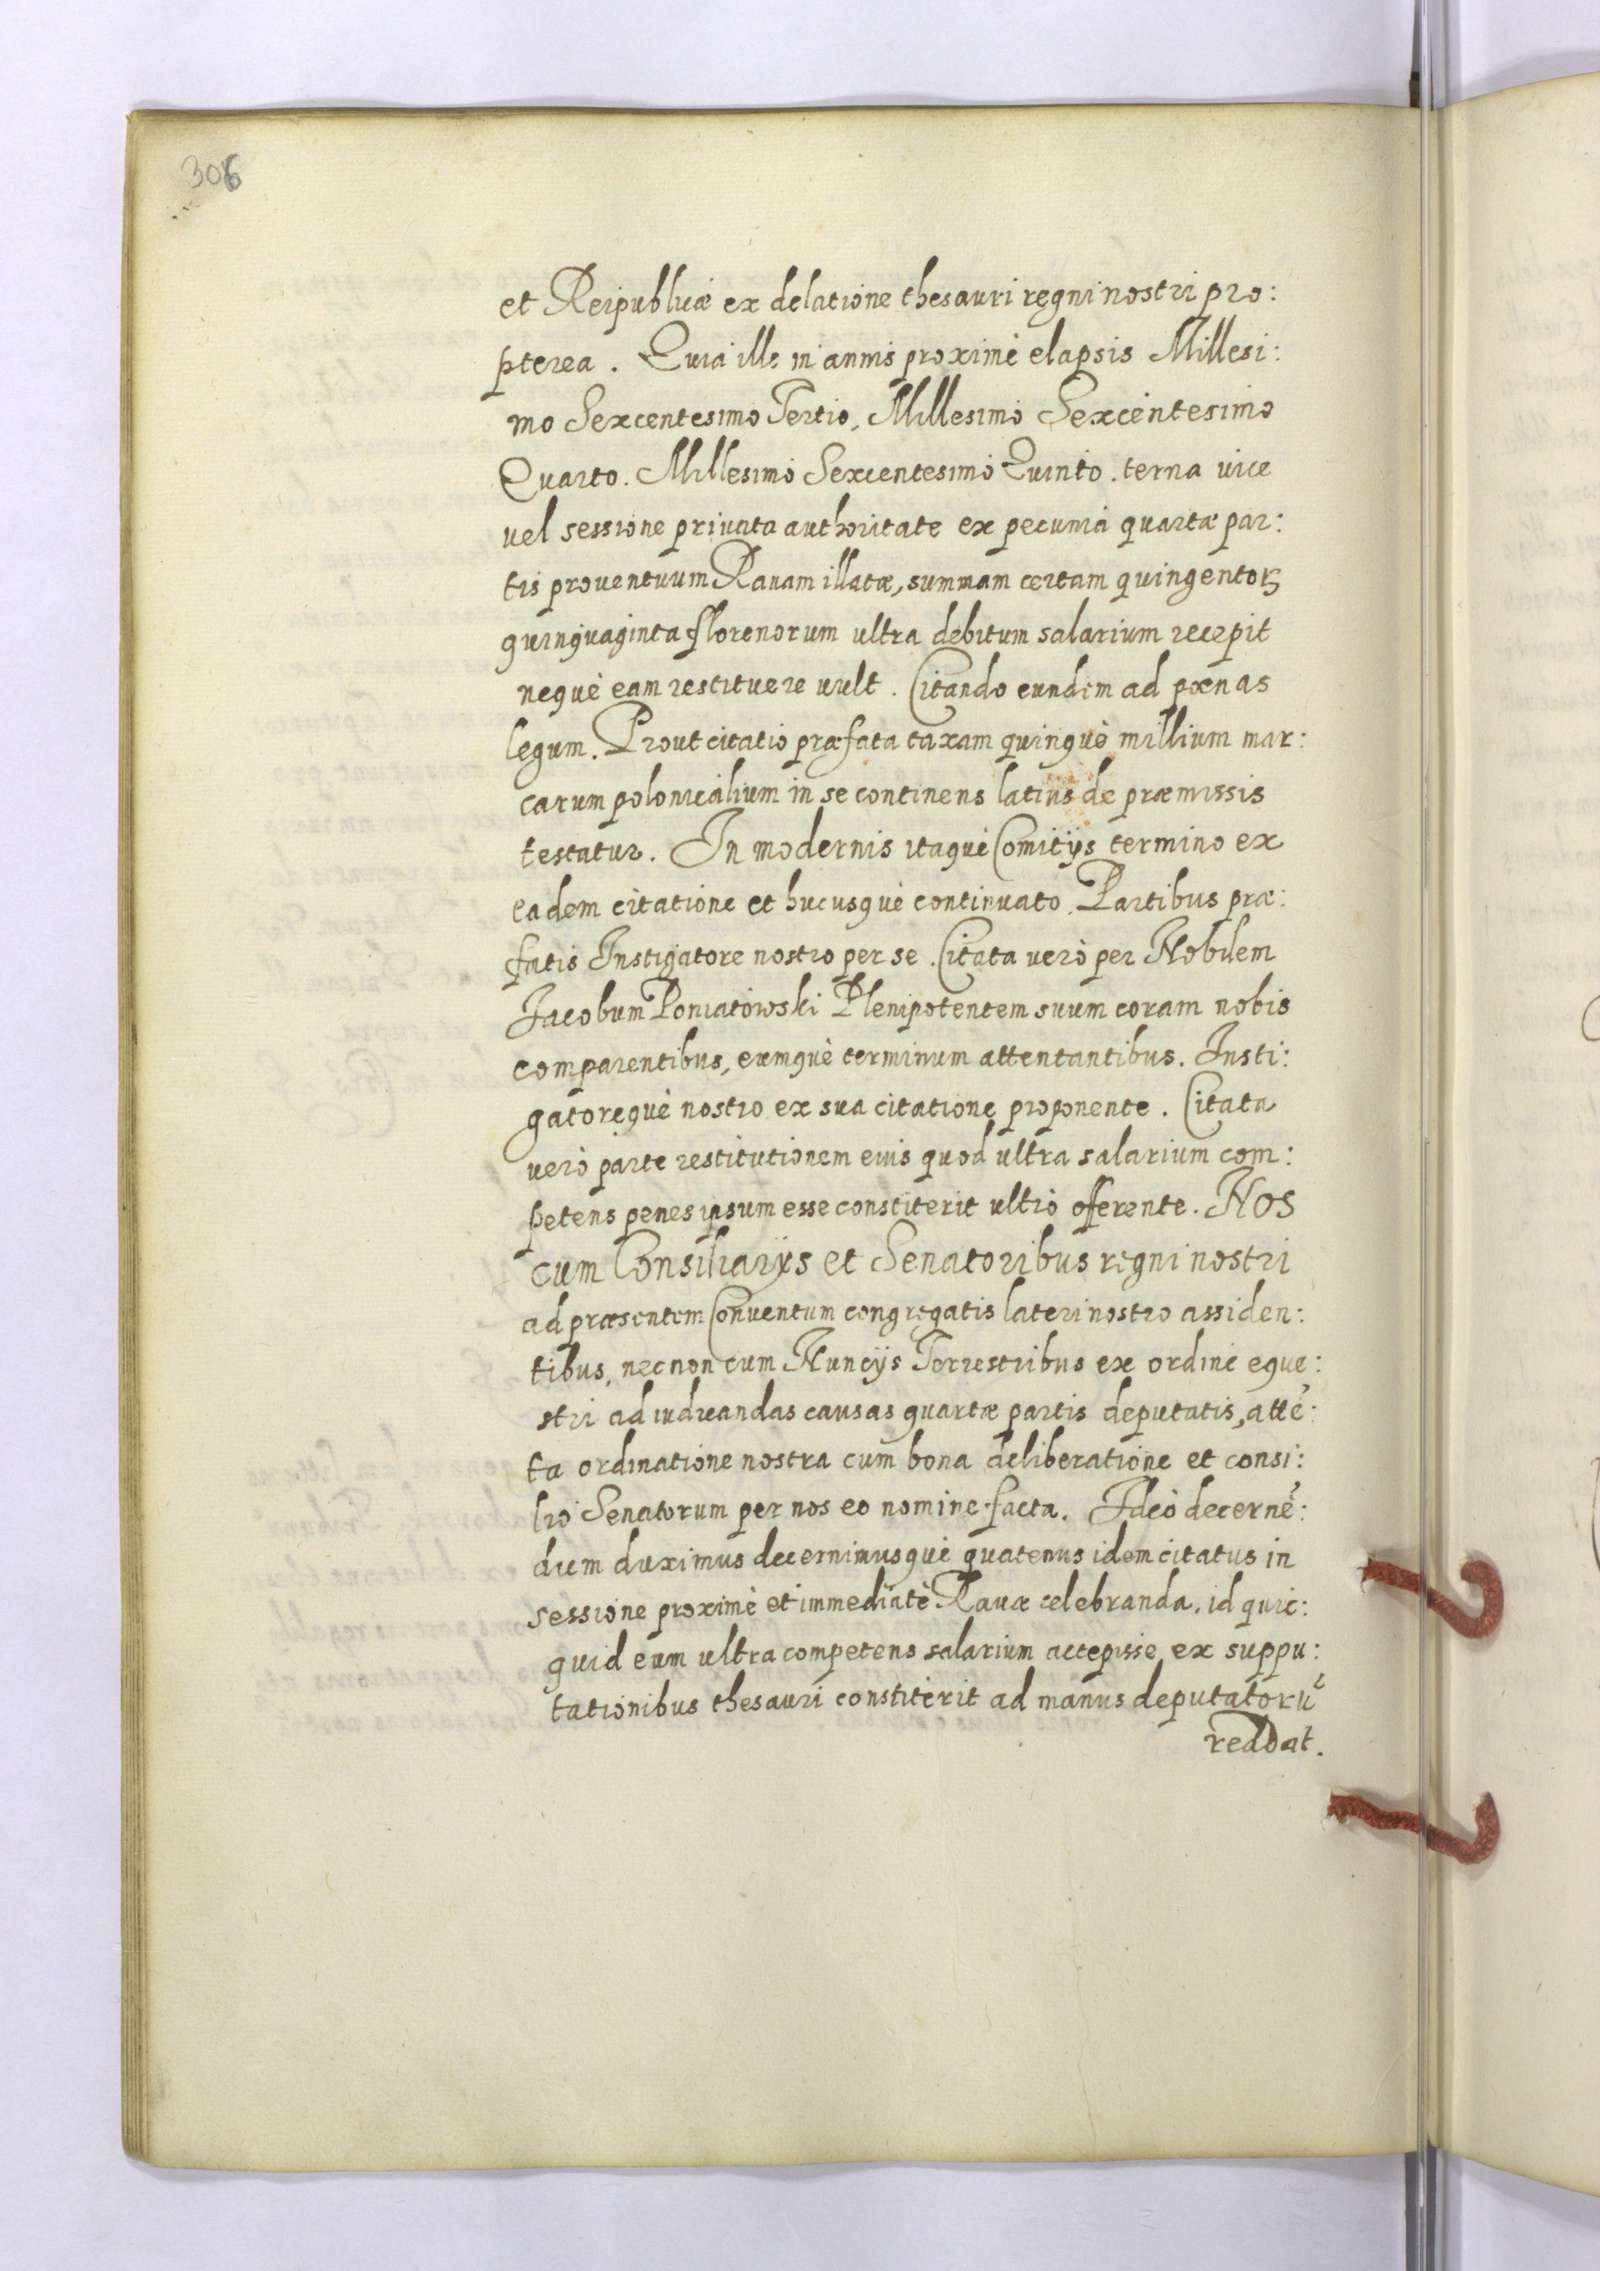 306
et Reipublicæ ex delatione thesauri regni nostri pro:
pterea. Quia ille in annis proximè elapsis Millesi:
mo Sexcentesimo Tertio, Millesimo Sexcentesimo
Quarto. Millesimo Sexcentesimo Quinto. terna vice
vel sessione priuata authoritate ex pecunia quartæ par:
tis prouentuum Rauam illatæ, summam certam quingentoꝝ
quinquaginta florenorum ultra debitum salarium recepit
nequè eam restituere uult. Citando eundem ad pœnas
legum. Prout citatio præfata taxam quinquè millium mar:
carum polonicalium in se continens latius de præmissis
testatur. In modernis itaquè Comitijs termino ex
eadem citatione et hucusquè continuato. Partibus præ:
fatis Instigatore nostro per se. Citata verò per Nobilem
Jacobum Poniatowski Plenipotentem suum coram nobis
comparentibus, eumquè terminum attentantibus. Insti:
gatorequè nostro ex sua citatione proponente. Citata
verò parte restitutionem eius quod ultra salarium com:
petens penes ipsum esse constiterit ultrò offerente. NOS
cum Consiliarijs et Senatoribus regni nostri
ad præsentem Conuentum congregatis lateri nostro assiden:
tibus, necnon cum Nuncijs Terrestribus ex ordine eque:
stri ad iudicandas causas quartæ partis deputatis, attē:
ta ordinatione nostra cum bona deliberatione et consi:
lio Senatorum per nos eo nomine facta. Ideò decernē:
dum duximus decernimusquè quatenus idem citatus in
sessione proximè et immediatè Rauæ celebranda, id quic:
quid eum ultra competens salarium accepisse ex suppu:
tationibus thesauri constiterit ad manus deputatorū
reddat.